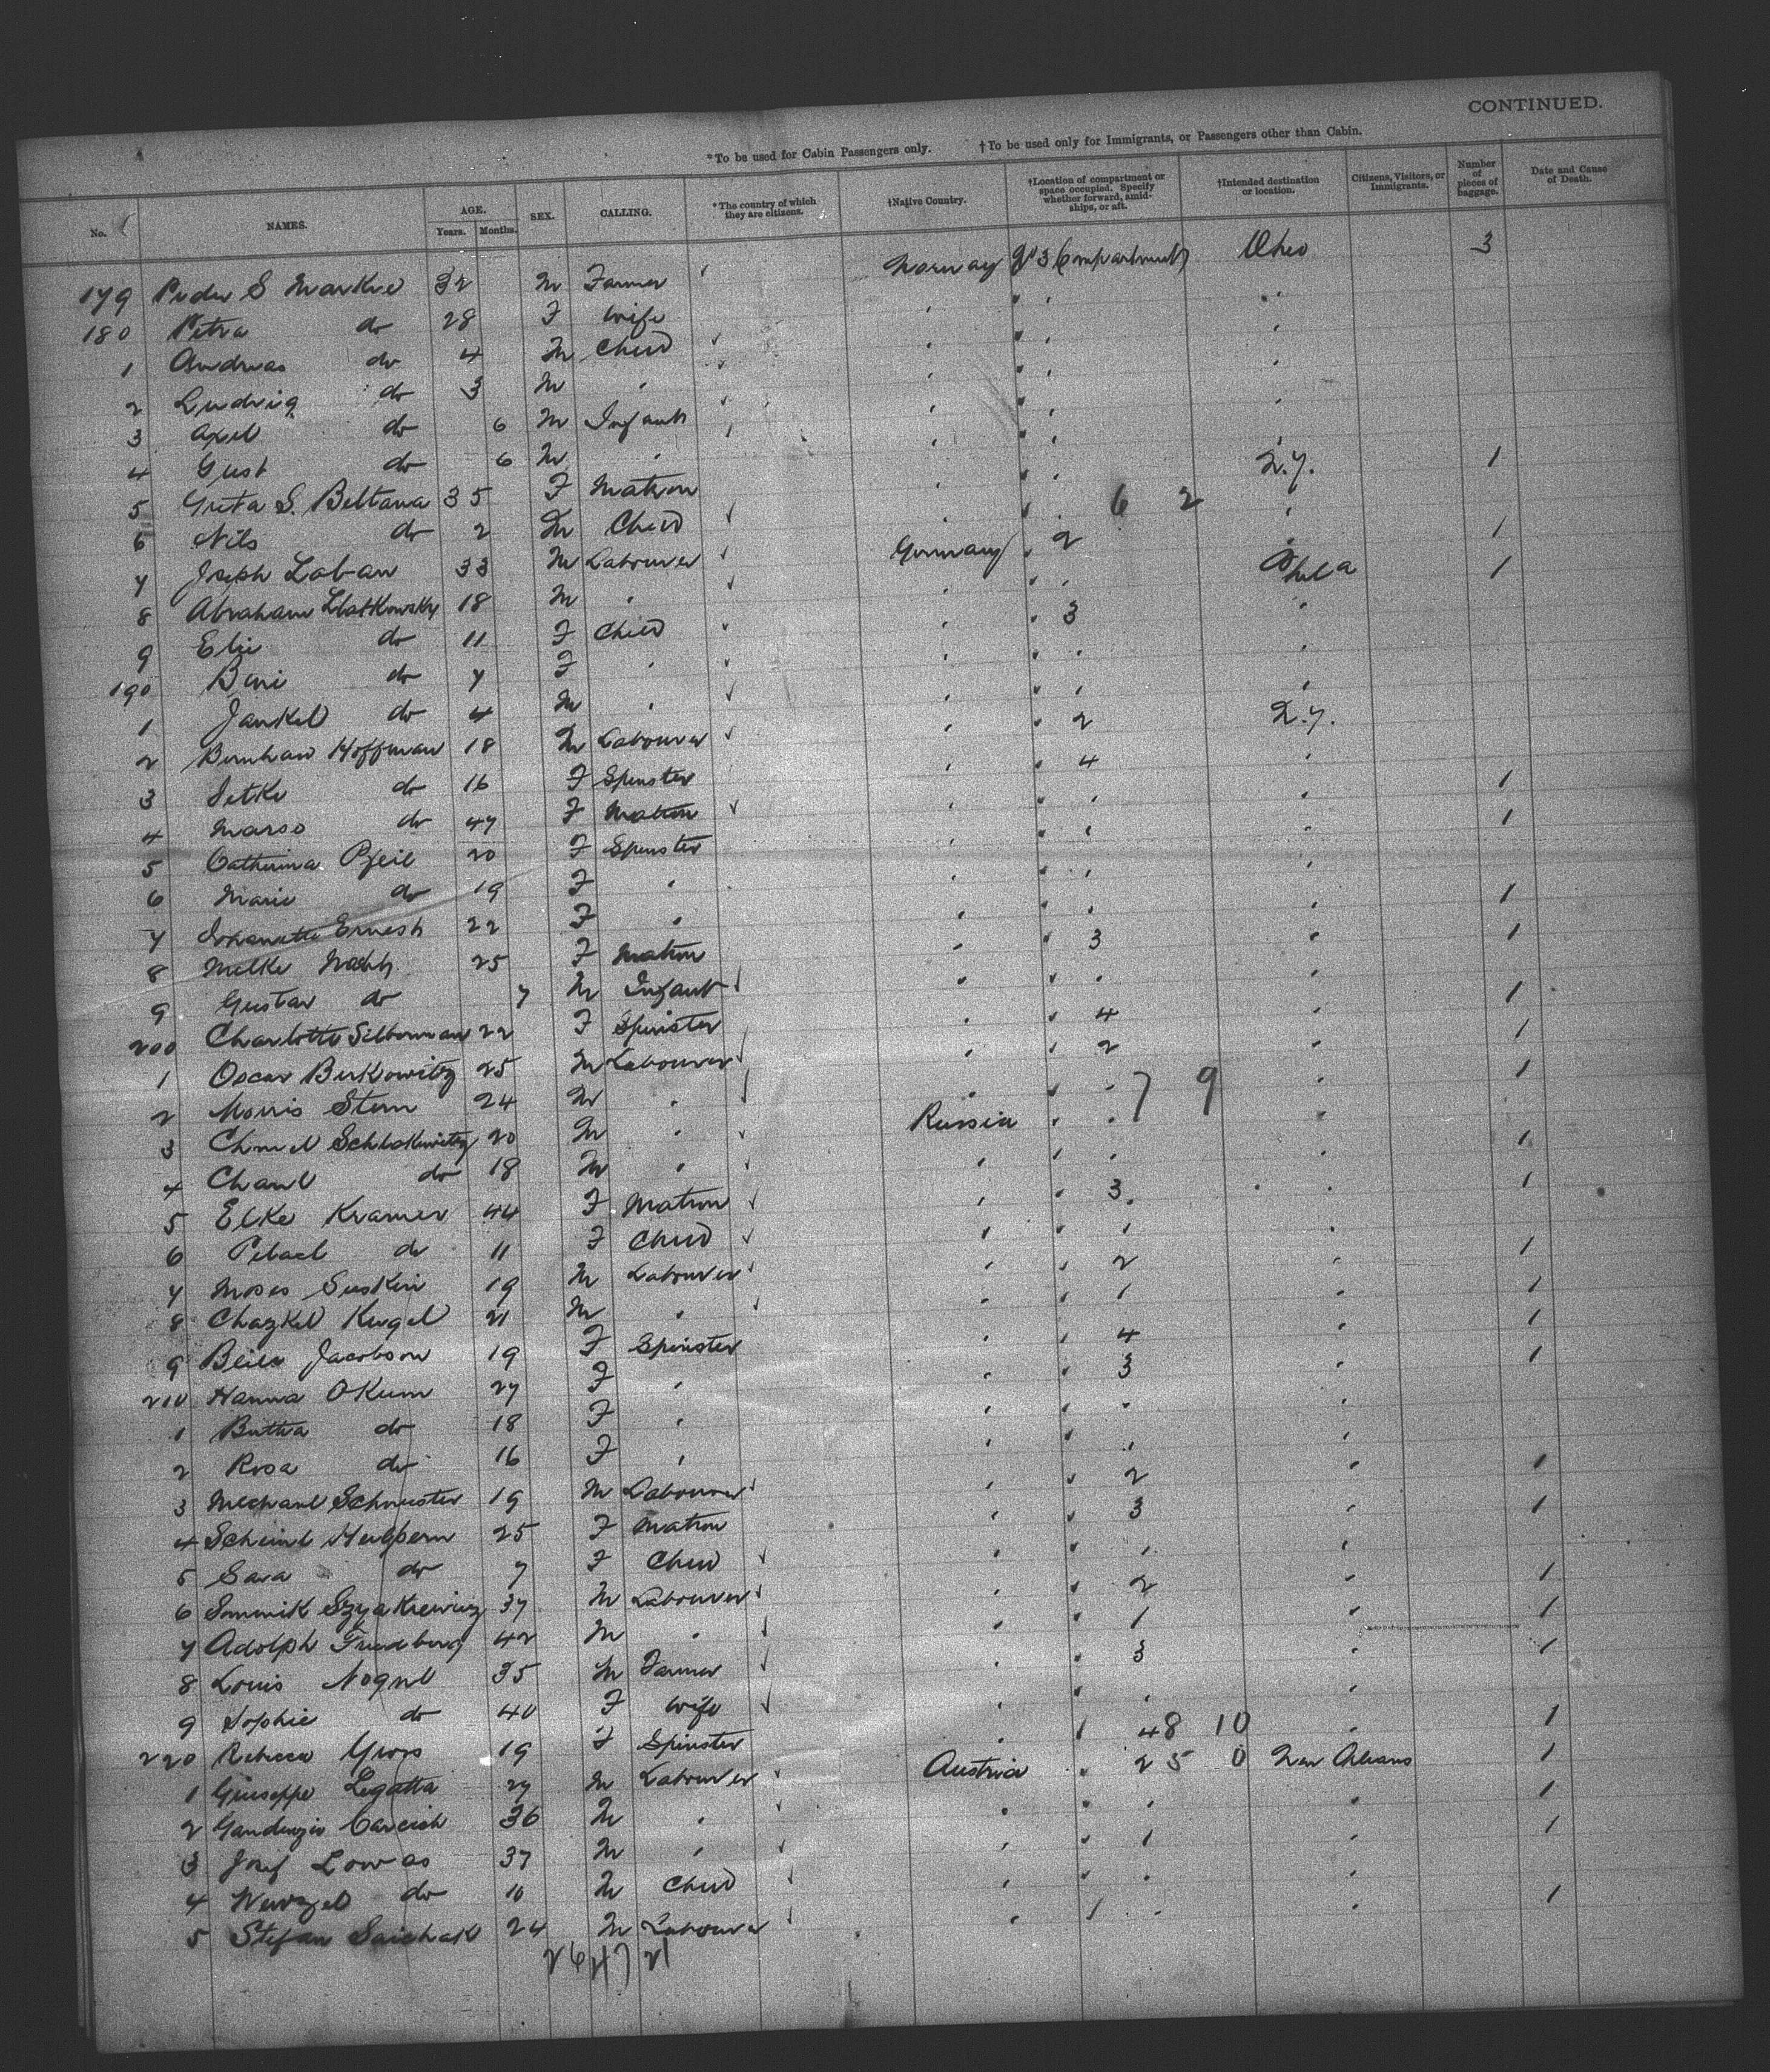 CONTINUED.
*To be used for Cabin Passengers only. †To be used only for Immigrants, or Passengers other than Cabin.
No. NAMES. AGE. Years. Months. SEX. CALLING. *The country of which they are citizens. †Native Country. †Location of compartment or space occupied. Specify whether forward, amidships, or aft. †Intended destination or location. Citizens, Visitors, or Immigrants. Number of pieces of baggage. Date and Cause of Death.
179 Peder S 32 M Farmer Norway No 3 Compartment Ohio 3
180 Petra do 28 F Wife
1 Andreas do 4 M Child
2 Ludvig do 3 M "
3 Axel do 6 M Infant
4 Gust do 6 M "
5 Greta S. Beltana 35 F Matron N.Y. 1
6 Nils do 2 M Child 6 2
7 Joseph Laban 33 M Labourer Germany 2 1
8 Abraham 18 M " Phila 1
9 Elie do 11 F Child 3
190 Beni do 7 F "
1 Jankel do 4 M "
2 Hoffman 18 M Labourer 2 N.Y.
3 do 16 F Spinster 4
4 Marso do 47 F Matron 1
5 Catherina Pfeil 20 F Spinster 1
6 Marie do 19 F "
7 Ernest 22 F " 1
8 25 F Matron 3 1
9 Gustav do 7 M Infant
200 Charlotte Silberman 22 F Spinster 4 1
1 Oscar Berkowitz 25 M Labourer 2 1
2 Morris Stern 24 M " 7 9 1
3 20 M " Russia
4 do 18 M " 1
5 Elke Kramer 44 F Matron 3 1
6 do 11 F Child
7 Moses Suskin 19 M Labourer 2 1
8 Chazkel Kugel 21 M " 1 1
9 Jacobson 19 F Spinster 4 1
210 Hanna Okum 27 F " 3 1
1 do 18 F "
2 Rosa do 16 F "
3 19 M Labourer 2 1
4 Halpern 25 F Matron 3 1
5 Sara do 7 F Child
6 37 M Labourer 2 1
7 Adolph Friedberg 42 M " 1 1
8 Louis 35 M Farmer 3 1
9 Sophie do 40 F Wife
220 Rebecca 19 F Spinster 48 10 1
1 Giuseppe Legatta 27 M Labourer Austria 2 5 0 New Orleans 1
2 36 M " 1
3 Josef Lowas 37 M " 1 1
4 Wenzel do 10 M Child
5 Stefan 24 M Labourer 1
26 47 21